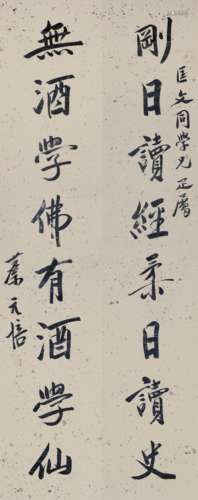 匡文同學兄正屬
剛日讀經柔日讀史
無酒學佛有酒學仙
蔡元培